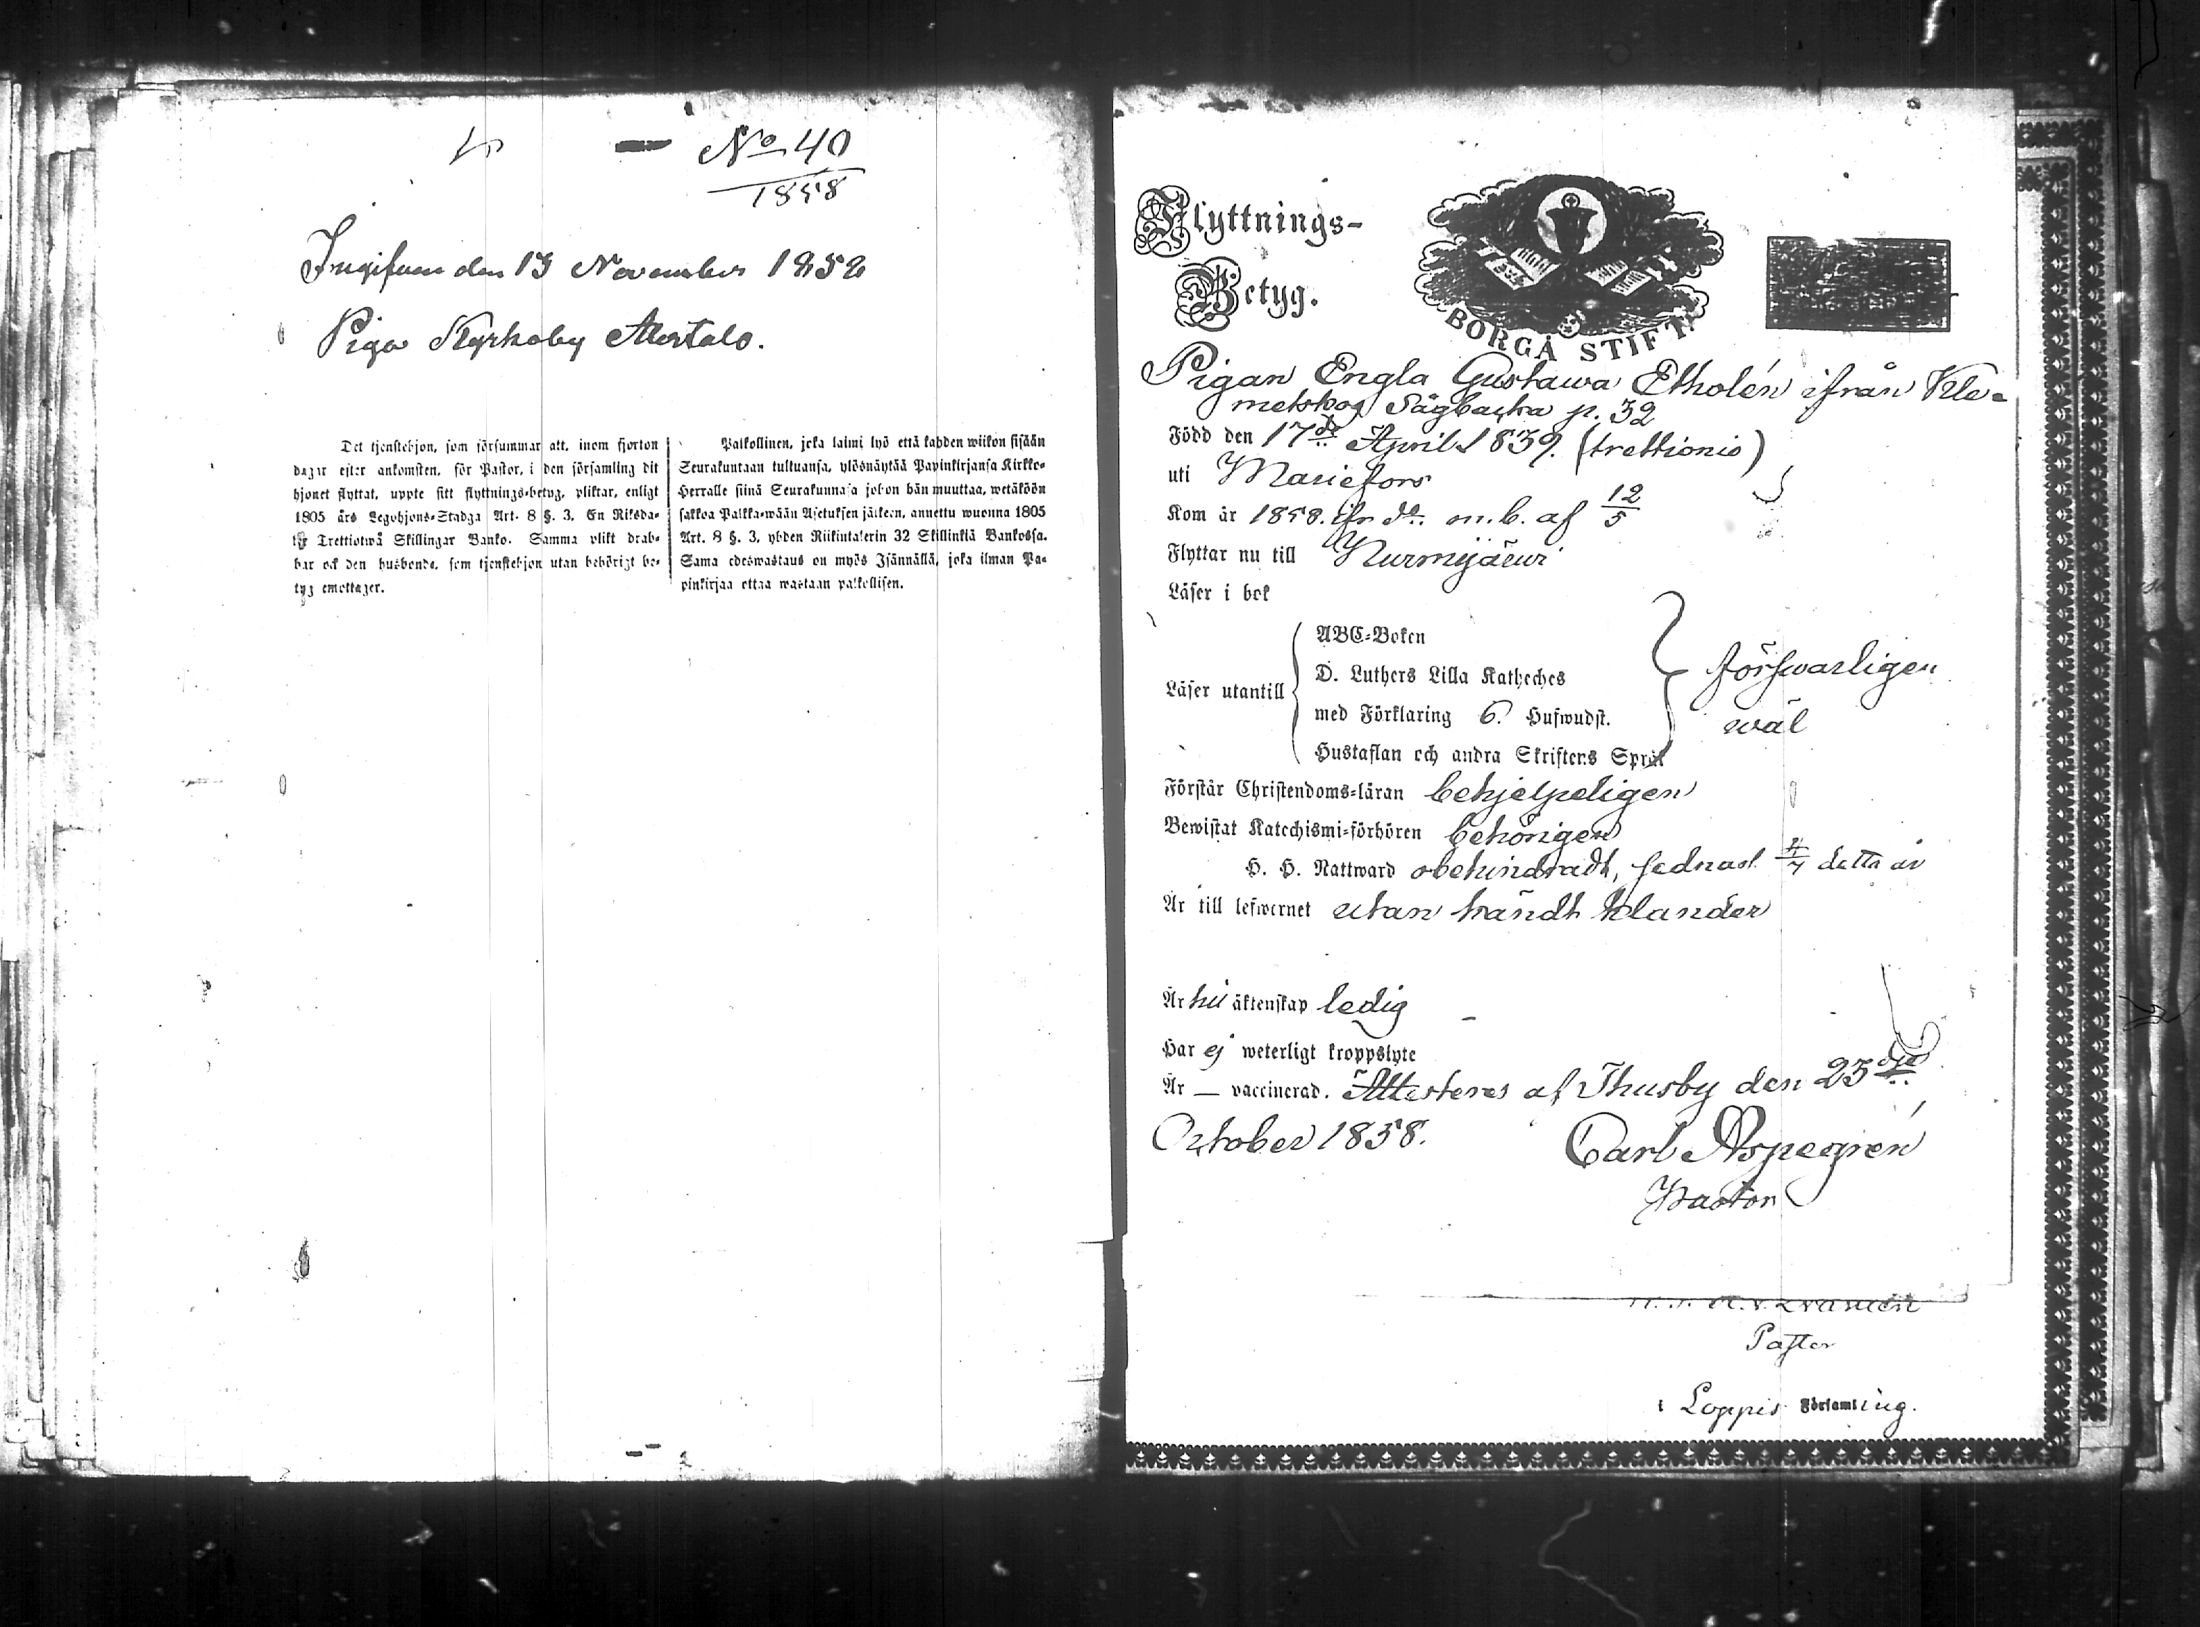 No 40
1858
Ingifven den 13 November 1858
Piga Kyrkoby Alestalo.
Det tjenstehjon, som försummar att, inom fjorton
dagar efter ankomsten, för Pastor, i den församling dit
hjonet flyttat, uppte sitt flyttnings-betyg, pliktar, enligt
1805 års Legohjons-Stadga Art. 8 §. 3. En Riksda-
ler Trettiotwå Skillingar Banko. Samma plikt drab-
bar ock den husbonde, som tjenstehjon utan behörigt be-
tyg emottager.
Palkollinen, joka laimi lyö että kahden wiikon sisään
Seurakuntaan tultuansa, ylösnäytää Papinkirjansa Kirkko-
Herralle siinä Seurakunnasa johon hän muuttaa, wetäköön
sakkoa Palkka-wään Asetuksen jälkeen, annettu wuonna 1805
Art. 8 §. 3, yhden Riikintalerin 32 Skillinkiä Bankossa.
Sama edeswastaus on myös Isännällä, joka ilman Pa-
pinkirjaa ottaa wastaan palkollisen.
Flyttnings-
Betyg.
BORGÅ STIFT.
Pigan Engla Gustawa Etholén ifrån Kle-
metskog Sågbacka p. 32
Född den 17de April 1839. (trettionio)
uti Mariefors
Kom år 1858. ifr do. m.b. af 12/5
Flyttar nu till Nurmijärwi
Läser i bok
ABC-Boken
Läser utantill
D. Luthers Lilla Katheches
med Förklaring 6. Hufwudst.
Hustaflan och andra Skriftens Språk
försvarligen
wäl
Förstår Christendoms-läran behjelpeligen
Bewistat Katechismi-förhören behörigen
H. H. Nattward obehindradt, sednast detta år
Är till lefwernet utan kändt klander
Är till äktenskap ledig
Har ej weterligt kroppslyte
Är — vaccinerad. Attesteras af Thusby den 23dje
October 1858.
Carl Aspegrén
Pastor
Pastor
i Loppis Församling.